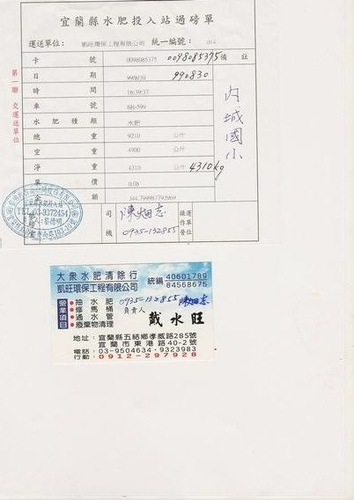 宜蘭縣水肥投入站過磅單
運送單位： 凱旺環保工程有限公司 統一編號：
卡 號 0098085375 0098085375 備註
日 期 99/8/30 990830
時 間 16:39:37
車 號 6H-599
水肥種類 水肥
總 重 9210 公斤
空 重 4900 公斤
淨 重 4310 公斤 4310kg
單 號
內城國小
第一聯 交運送單位
TEL:03-9372454
司機 0935-132855
大眾水肥清除行
凱旺環保工程有限公司
統編 40601789
84568675
營業項目
抽水肥
修馬桶
通水管
廢棄物清理
0935-132855
負責人 戴水旺
地址：宜蘭縣五結鄉孝威路285號
宜蘭市東港路40-2號
電話：03-9504634・9323983
行動：0912-297928